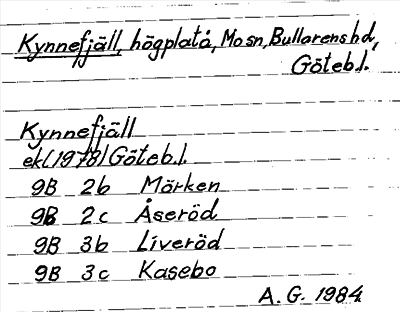 Kynnefjäll, högplatå, Mo sn, Bullarens hd,
Göteb.l.
Kynnefjäll
ek(1978) Göteb.l.
9B 2b Mörken
9B 2c Åseröd
9B 3b Liveröd
9B 3c Kasebo
A.G. 1984